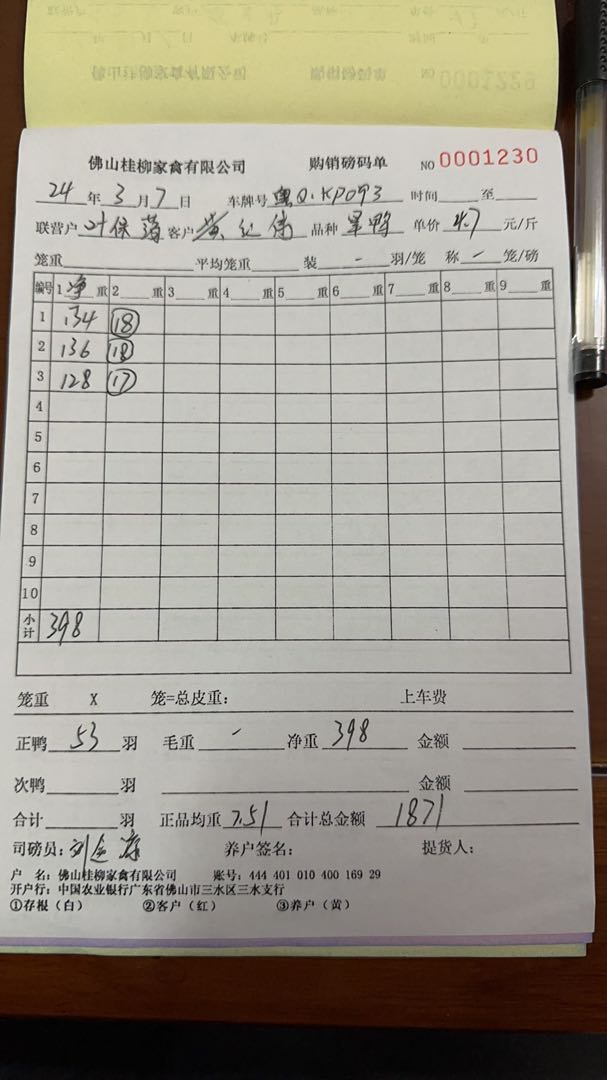 NO 0001229
佛山桂柳家禽有限公司 购销磅码单 NO 0001230
24 年 3 月 7 日 车牌号 粤Q·KP093 时间 至
联营户 叶保 客户 黄红伟 品种 单价 4.7 元/斤
笼重 平均笼重 装 - 羽/笼 称 - 笼/磅
编号 1 净 重 2 重 3 重 4 重 5 重 6 重 7 重 8 重 9 重
1 134 18
2 136 18
3 128 17
4
5
6
7
8
9
10
小计 398
笼重 X 笼=总皮重: 上车费
正鸭 53 羽 毛重 - 净重 398 金额
次鸭 羽 金额
合计 羽 正品均重 7.51 合计总金额 1871
司磅员: 刘 养户签名: 提货人:
户 名: 佛山桂柳家禽有限公司 账号: 444 401 010 400 169 29
开户行: 中国农业银行广东省佛山市三水区三水支行
①存根(白) ②客户(红) ③养户(黄)